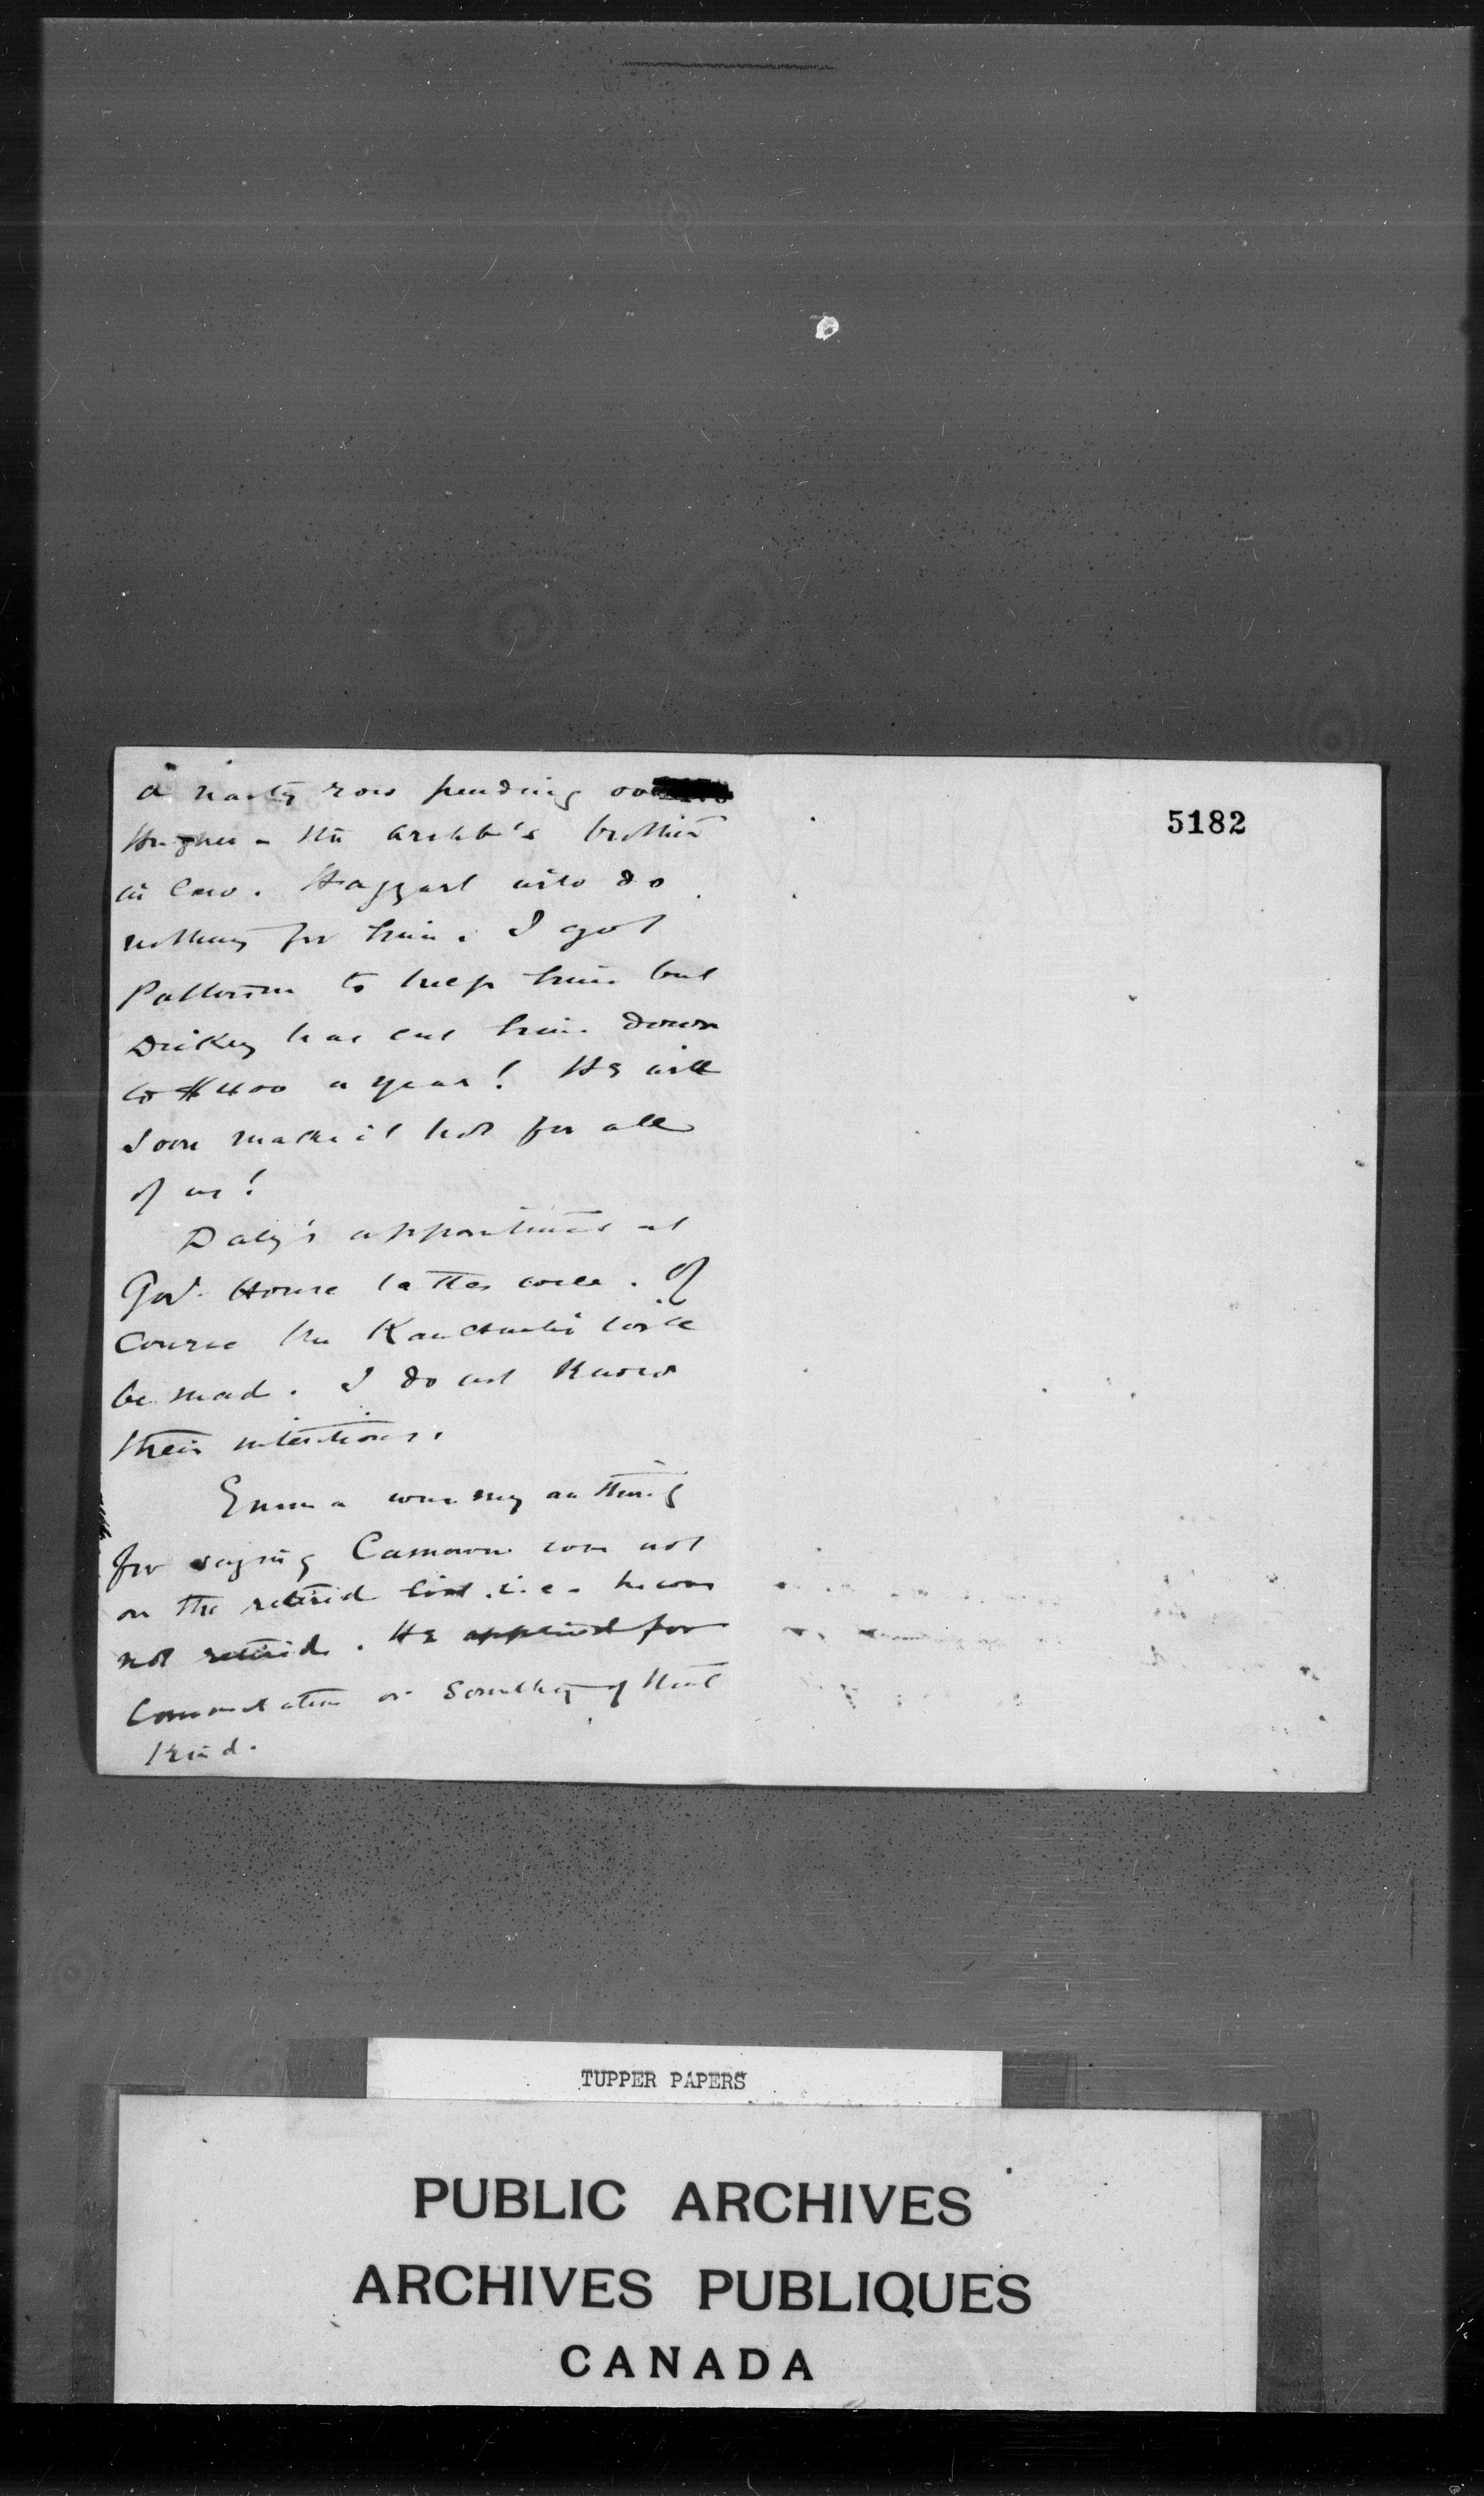 a nasty row pending
Hughes - the Archb's brother
in law. Haggart will do
nothing for him. I got
Patterson to keep him but
Dickey has cut him down
to $400 a year! He will
soon make it hot for all
of us!
Daly's appointment at
Gov. House takes well. Of
course the will
be mad. I do not know
their intentions.
Emma was my authority
for saying Cameron was not
on the retired list. i.e. he was
not retired. He applied for
Commutation or something of that
kind.
5182
TUPPER PAPERS
PUBLIC ARCHIVES
ARCHIVES PUBLIQUES
CANADA